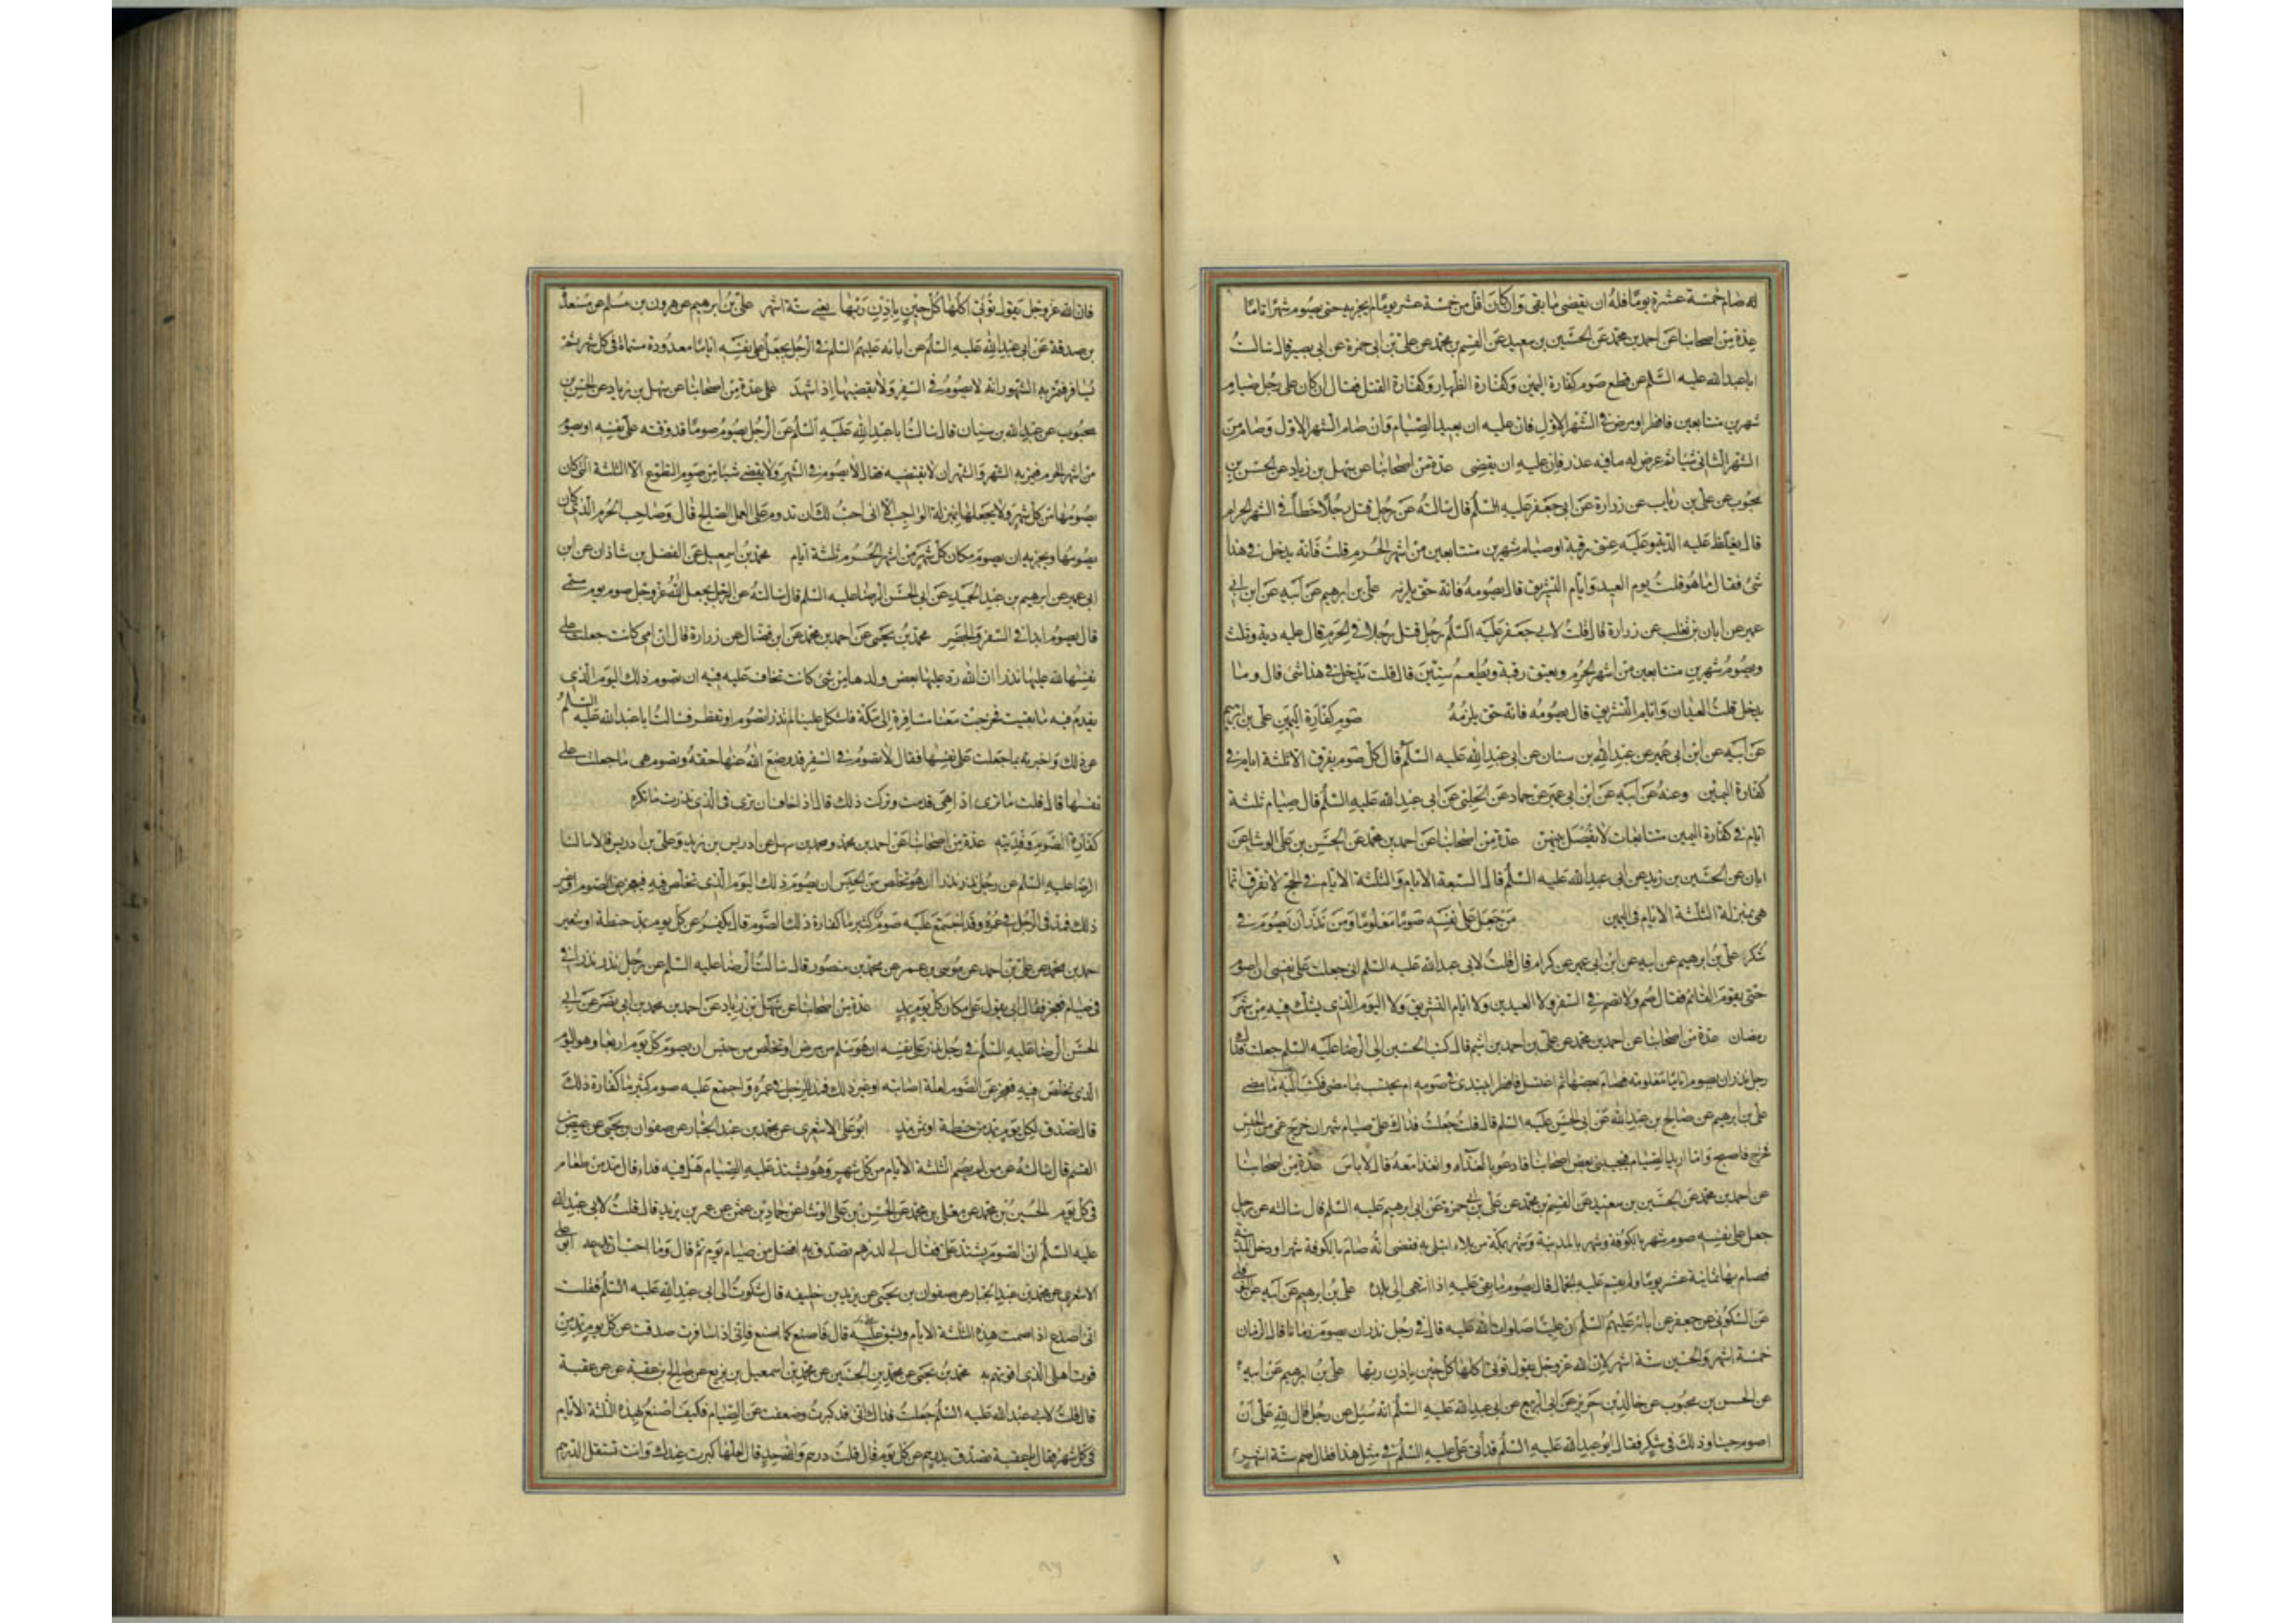 له صام خمسة عشرة يوما فله ان يقضى ما بقى وان كان اقل من خمسة عشر يوما لم يجزيه حتى يصوم شهرا تاما
عدة من اصحابنا عن احمد بن محمد عن الحسين بن سعيد عن القسم بن محمد عن على بن ابى حمزة عن ابى بصير قال سالت
ابا عبد الله عليه السلم عن قطع صوم كفارة اليمين وكفارة الظهار وكفارة القتل فقال ان كان على رجل صيام
شهرين متتابعين فافطر او مرض فى الشهر الاول فان عليه ان يعيد الصيام وان صام الشهر الاول وصام من
الشهر الثانى شيئا ثم عرض له ما فيه عذر فان عليه ان يقضى عدة من اصحابنا عن سهل بن زياد عن الحسن بن
محبوب عن على بن رياب عن زرارة عن ابى جعفر عليه السلم قال سالته عن رجل قتل رجلا خطأ فى الشهر الحرام
قال يغلظ عليه الدية وعليه عتق رقبة او صيام شهرين متتابعين من اشهر الحرم قلت فانه يدخل فى هذا
شئ فقال ما هو قلت يوم العيد وايام التشريق قال يصومه فانه حق يلزمه على بن ابرهيم عن ابيه عن ابن ابى
عمير عن ابان بن تغلب عن زرارة قال قلت لابى جعفر عليه السلم رجل قتل رجلا فى الحرم قال عليه دية وثلث
ويصوم شهرين متتابعين من اشهر الحرم ويعتق رقبة ويطعم ستين قال قلت يدخل فى هذا شئ قال وما
يدخل قلت العيدان وايام التشريق قال يصومه فانه حق يلزمه صوم كفارة اليمين على بن ابرهيم
عن ابيه عن ابن ابى عمير عن عبد الله بن سنان عن ابى عبد الله عليه السلم قال كل صوم يفرق الا ثلثة ايام فى
كفارة اليمين وعنه عن ابيه عن ابن ابى عمير عن حماد عن الحلبى عن ابى عبد الله عليه السلم قال صيام ثلثة
ايام فى كفارة اليمين متتابعات لا يفصل بينهن عدة من اصحابنا عن احمد بن محمد عن الحسن بن على الوشا عن
ابان عن الحسين بن زيد عن ابى عبد الله عليه السلم قال السبعة الايام والثلثة الايام فى الحج لا تفرق انما
هى بمنزلة الثلثة الايام فى اليمين من جعل على نفسه صوما معلوما ومن نذر ان يصوم فى
شكر على بن ابرهيم عن ابيه عن ابن ابى عمير عن كرام قال قلت لابى عبد الله عليه السلم انى جعلت على نفسى ان اصوم
حتى يقوم القائم فقال صم ولا تصم فى السفر ولا العيدين ولا ايام التشريق ولا اليوم الذى يشك فيه من شهر
رمضان عدة من اصحابنا عن احمد بن محمد عن على بن احمد بن اشيم قال كتب الحسين الى الرضا عليه السلم جعلت فداك
رجل نذر ان يصوم اياما معلومة فصام بعضها ثم اعتل فافطر ايبتدى فى صومه ام يحتسب بما مضى فكتب اليه ما مضى
على بن ابرهيم عن صالح بن عبد الله عن ابى الحسن عليه السلم قال قلت جعلت فداك على صيام شهر ان خرج عمى من الحبس
فخرج فاصبح وانا اريد الصيام فيجيبنى بعض اصحابنا فادعو بالغداء واتغدا معه قال لا باس عدة من اصحابنا
عن احمد بن محمد عن الحسين بن سعيد عن القسم بن محمد عن على بن ابى حمزة عن ابى ابرهيم عليه السلم قال سالته عن رجل
جعل على نفسه صوم شهر بالكوفة وشهر بالمدينة وشهر بمكة من بلاء ابتلى به فقضى انه صام بالكوفة شهرا ودخل المدينة
فصام بها ثمانية عشر يوما ولم يقم عليه الجمال قال يصوم ما بقى عليه اذا انتهى الى بلده على بن ابرهيم عن ابيه عن النوفلى
عن السكونى عن جعفر عن ابائه عليهم السلم ان عليا صلوات الله عليه قال فى رجل نذر ان يصوم زمانا قال الزمان
خمسة اشهر والحين ستة اشهر لان الله عز وجل يقول تؤتى اكلها كل حين باذن ربها على بن ابرهيم عن ابيه
عن الحسن بن محبوب عن خالد بن جرير عن ابى الربيع عن ابى عبد الله عليه السلم انه سئل عن رجل قال لله على ان
اصوم حينا وذلك فى شكر فقال ابو عبد الله عليه السلم قد أتى على عليه السلم فى مثل هذا فقال صم ستة اشهر
فان الله عز وجل يقول تؤتى اكلها كل حين باذن ربها يعنى ستة اشهر على بن ابرهيم عن هرون بن مسلم عن مسعدة
بن صدقة عن ابى عبد الله عليه السلم عن ابائه عليهم السلم فى الرجل يجعل على نفسه اياما معدودة مسماة فى كل شهر ثم
يسافر فتمر به الشهور انه لا يصوم فى السفر ولا يقضيها اذا شهد على عدة من اصحابنا عن سهل بن زياد عن الحسن بن
محبوب عن عبد الله بن سنان قال سالت ابا عبد الله عليه السلم عن الرجل يصوم صوما قد وقته على نفسه او يصوم
من اشهر الحرم فيمر به الشهر والشهران لا يقضيه فقال لا يصوم فى الشهر ولا يقضى شيئا من صوم التطوع الا الثلثة التى كان
يصومها من كل شهر ولا يجعلها بمنزلة الواجب الا انى احب لك ان تدوم على العمل الصالح قال وصاحب الحرم الذى كان
يصومها ويجزيه ان يصوم مكان كل شهر من اشهر الحرم ثلثة ايام محمد بن اسمعيل عن الفضل بن شاذان عن ابن
ابى عمير عن ابرهيم بن عبد الحميد عن ابى الحسن الرضا عليه السلم قال سالته عن الرجل يجعل لله عز وجل صوم يوم مسمى
قال يصوم ابدا فى السفر والحضر محمد بن يحيى عن احمد بن محمد عن ابن فضال عن زرارة قال ان امى كانت جعلت على
نفسها لله عليها نذرا ان الله رد عليها بعض ولدها من شئ كانت تخاف عليه فيه ان تصوم ذلك اليوم الذى
يقدم فيه ما بقيت فخرجت معنا مسافرة الى مكة فاشكل علينا لم ندر اتصوم او تفطر فسالت ابا عبد الله عليه السلم
عن ذلك واخبرته بما جعلت على نفسها فقال لا تصوم فى السفر قد وضع الله عنها حقه وتصوم هى ما جعلت على
نفسها قال قلت ما ترى اذا هى قدمت وتركت ذلك قال اذا اخاف ان ترى فى الذى نذرت ما تكره
كفارة الصوم وفديته عدة من اصحابنا عن احمد بن محمد ومحمد بن سهل عن ادريس بن زيد وعلى بن ادريس قالا سالنا
الرضا عليه السلم عن رجل نذر نذرا ان هو تخلص من الحبس ان يصوم ذلك اليوم الذى تخلص فيه فيعجز عن الصوم او غير
ذلك فمد فى الرجل فى عمره وقد اجتمع عليه صوم كثير ما كفارة ذلك الصوم قال يكفر عن كل يوم بمد حنطة او شعير
احمد بن محمد عن على بن احمد عن موسى بن عمر عن محمد بن منصور قال سالت الرضا عليه السلم عن رجل نذر نذرا فى
فى صيام فعجز فقال ابى يقول على مكان كل يوم بمد عدة من اصحابنا عن سهل بن زياد عن احمد بن محمد بن ابى نصر عن ابى
الحسن الرضا عليه السلم فى رجل نذر على نفسه ان هو سلم من مرض او تخلص من حبس ان يصوم كل يوم اربعا وهو اليوم
الذى تخلص فيه فعجز عن الصوم لعلة اصابته او غير ذلك فمد للرجل فى عمره واجتمع عليه صوم كثير ما كفارة ذلك
قال تصدق لكل يوم بمد من حنطة او ثمن مد ابو على الاشعرى عن محمد بن عبد الجبار عن صفوان بن يحيى عن عيص بن
القسم قال سالته عن من لم يصم الثلثة الايام من كل شهر وهو يشتد عليه الصيام هل فيه فداء قال مد من طعام
فى كل يوم الحسين بن محمد عن معلى بن محمد عن الحسن بن على الوشا عن حماد بن عثمن عن عمر بن يزيد قال قلت لابى عبد الله
عليه السلم ان الصوم يشتد على فقال لى لدرهم تصدق به افضل من صيام يوم ثم قال وما احب ان تدعه ابو على
الاشعرى عن محمد بن عبد الجبار عن صفوان بن يحيى عن يزيد بن خليفه قال شكوت الى ابى عبد الله عليه السلم فقلت
انى اصدع اذا صمت هذه الثلثة الايام ويشق على قال فاصنع كما اصنع فانى اذا سافرت صدقت عن كل يوم بمد من
قوت اهلى الذى اقوتهم به محمد بن يحيى عن محمد بن الحسين عن محمد بن اسمعيل بن بزيع عن صالح بن عقبة عن عقبة
قال قلت لابى عبد الله عليه السلم جعلت فداك انى قد كبرت وضعفت عن الصيام فكيف اصنع بهذه الثلثة الايام
فى كل شهر فقال يا عقبة تصدق بدرهم عن كل يوم قال قلت درهم واحد قال لعلها كبرت عندك وانت تستقل الدرهم